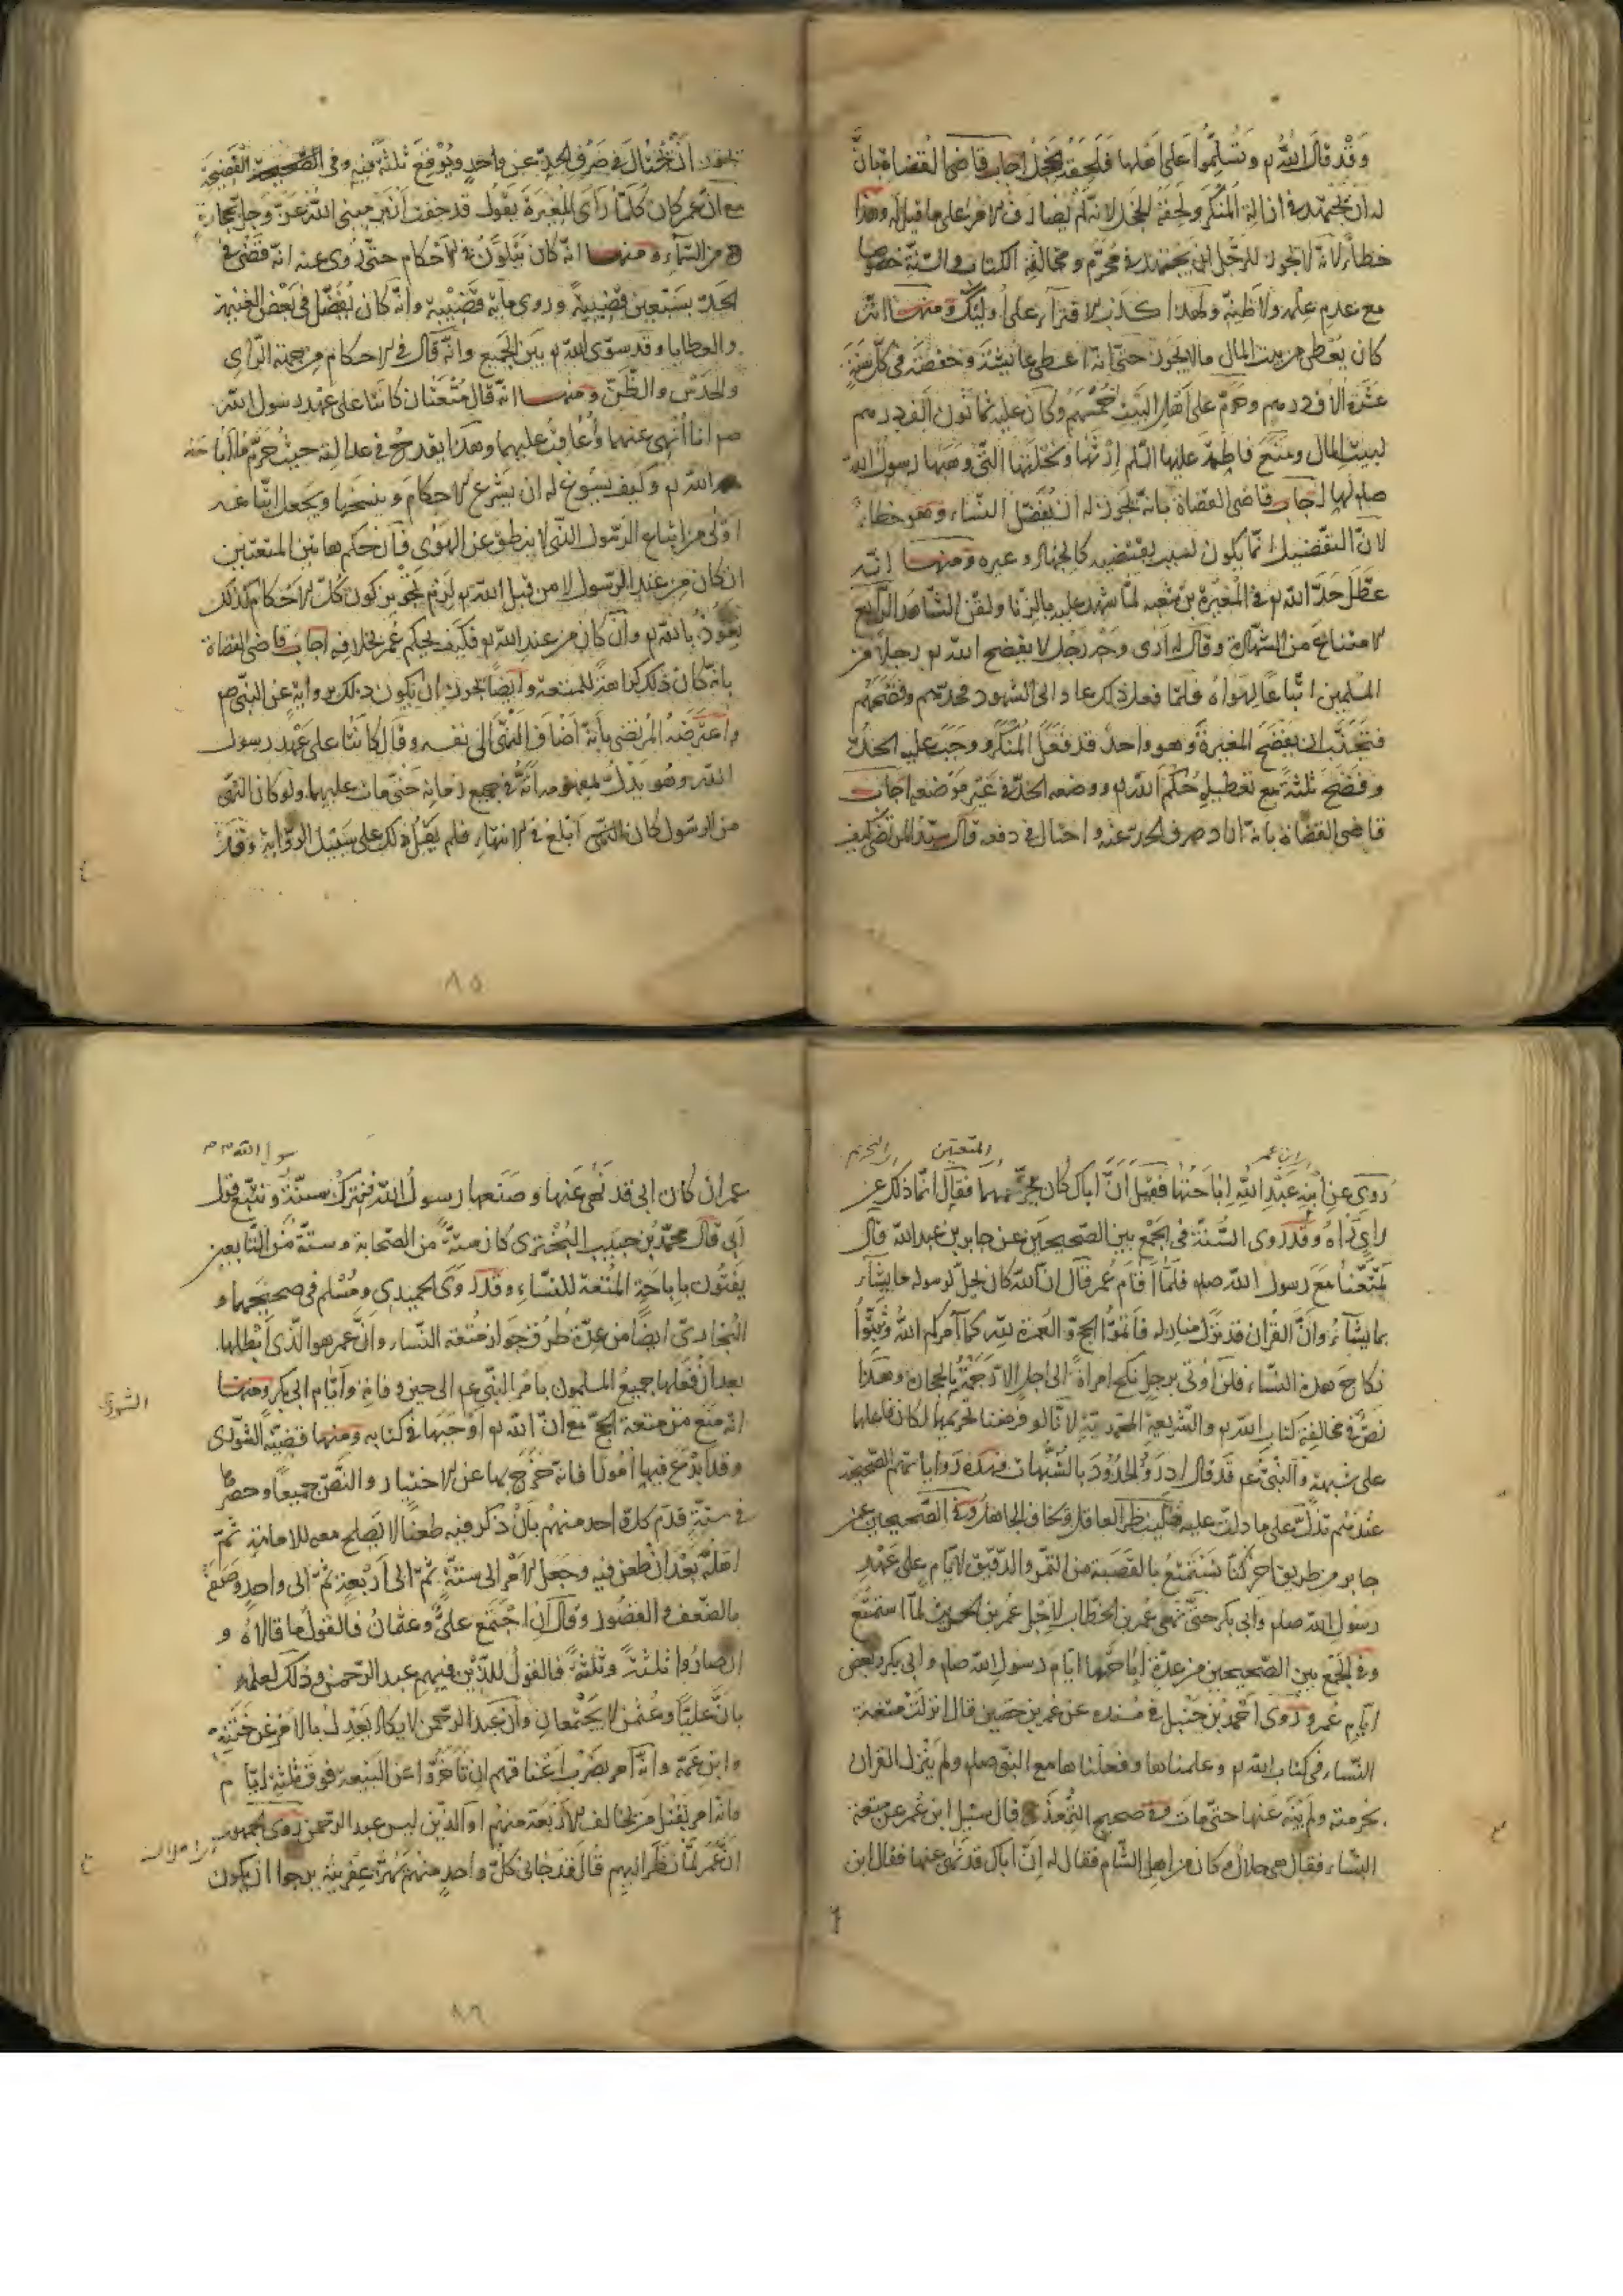 وقد قال الله تع وتسلموا على اهلها فلحقه الخجل اجاب قاضى القضاة بان
له ان يجتهد فى ازالة المنكر ولحقه الخجل لانه لم يصادف الامر على ما قيل له وهذا
خطأ لانه لا يجوز للرجل ان يجتهد فى محرم ومخالفة الكتاب والسنة خصوصا
مع عدم علمه ولا ظنه ولهذا كذب الافتراء على اولئك ومنها انه
كان يعطى من بيت المال ما لا يجوز حتى انه اعطى عايشة وحفصة فى كل سنة
عشرة الاف درهم وحرم على اهل البيت خمسهم وكان عليه ثمانون الف درهم
لبيت المال ومنع فاطمة عليها السلم ارثها ونحلتها التى وهبها رسول الله
صلم لها اجاب قاضى القضاة بانه يجوز له ان يفضل النساء وهو خطاء
لان التفضيل انما يكون لسبب يقتضيه كالجهاد وغيره ومنها انه
عطل حد الله تع فى المغيرة بن شعبه لما شهد عليه بالزنا ولقن الشاهد الرابع
الامتناع من الشهادة وقال له ارى وجه رجل لا يفضح الله تع رجلا من
المسلمين اتباعا لهواه فلما فعل ذلك عاد الى الشهود فحدهم وفضحهم
فتجنب ان يفضح المغيرة وهو واحد قد فعل المنكر ووجب عليه الحد
وفضح ثلثة مع تعطيله حكم الله تع ووضعه الحد فى غير موضعه اجاب
قاضى القضاة بانه اراد صرف الحد عنه واحتال فى دفعه قال سيد المرتضى كيف
يجوز ان يحتال فى صرف الحد عن واحد ويوقع ثلثة فيه وفى الفضيحة
مع ان عمر كان كلما راى المغيرة يقول قد خفت ان يرمينى الله عز وجل بحجارة
من السماء ومنها انه كان يتلون فى الاحكام حتى روى عنه انه قضى فى
الحد بسبعين قضيبية وروى ماية قضيبية وانه كان يفضل فى بعض الغنيمة
والعطايا وقد سوى الله تع بين الجميع وانه قال فى الاحكام من جهة الراى
والحدس والظن ومنها انه قال متعتان كانتا على عهد رسول الله
صم انا انهى عنهما واعاقب عليهما وهذا يقدح فى عدالته حيث حرم ما اباحه
الله تع وكيف يسوغ له ان يشرع الاحكام وينسخها ويجعل اتباعه
اولى من اتباع الرسول الذى لا ينطق عن الهوى فان حكم هاتين المتعتين
ان كان من عند الرسول لا من قبل الله تع لزم تجويز كون كل الاحكام كذلك
نعوذ بالله تع وان كان من عند الله تع فكيف يحكم عمر بخلافه اجاب قاضى القضاة
بانه كان ذلك كراهة للمتعة وايضا يجوز ان يكون ذلك رواية عن النبى صم
واعترضه المرتضى بانه اضاف النهى الى نفسه وقال كانتا على عهد رسول
الله وهو يدل بمفهومه انه فى جميع زمانه حتى مات عليهما ولو كان النهى
من الرسول كان النهى ابلغ فى الانتهاء فلم يقل ذلك على سبيل الرواية وقد
٨٥
ابن عمر
المتعتين
التحريم
روى عن ابنه عبد الله اباحتها فقيل ان اباك كان يحرمهما فقال انما ذلك عن
راى رآه وقد روى السنة فى الجمع بين الصحيحين عن جابر بن عبدالله قال
تمتعنا مع رسول الله صلم فلما قام عمر قال ان الله كان يحل لرسوله ما يشاء
بما يشاء وان القران قد نزل منازله فاتموا الحج والعمرة لله كما امركم الله وبتوا
نكاح هذه النساء فلن اوتى برجل نكح امراة الى اجل الا رجمته بالحجارة وهذا
نص فى مخالفة كتاب الله تع والشريعة المحمدية لانا لو فرضنا تحريمها لكان فاعلها
على شبهة والنبى عم قد قال ادرؤا الحدود بالشبهات فهذه رواياتهم الصحيحة
عندهم تدل على ما دلت عليه فلينظر العاقل ويخاف الجاهل وفى الصحيحين عن
جابر من طريق اخر كنا نستمتع بالقبضة من التمر والدقيق الايام على عهد
رسول الله صلم وابى بكر حتى نهى عمر بن الخطاب لاجل عمر بن الحريث لما استمتع
وفى الجمع بين الصحيحين من عدة اباحتها ايام رسول الله صلم وابى بكر وبعض
ايام عمر وروى احمد بن حنبل فى مسنده عن عمر بن حصين قال انزلت متعة
النساء فى كتاب الله تع وعلمناها وفعلناها مع النبى صلم ولم ينزل القران
بحرمته ولم ينه عنها حتى مات وفى صحيح الترمذى قال سئل ابن عمر عن متعة
النساء فقال هى حلال وكان من اهل الشام فقال له ان اباك قد نهى عنها فقال ابن
رسول الله صم
عمر ان كان ابى قد نهى عنها وصنعها رسول الله فنترك سنة ونتبع قول
ابى قال محمد بن حبيب البخترى كان ستة من الصحابة وستة من التابعين
يفتون باباحة المتعة للنساء وقد روى الحميدى ومسلم فى صحيحهما و
البخارى ايضا من عدة طرق جواز متعة النساء وان عمر هو الذى ابطلها
بعد ان فعلها جميع المسلمون بامر النبى عم الى حين وفاته وايام ابى بكر ومنها
انه منع من متعة الحج مع ان الله تع اوجبها فى كتابه ومنها قضية الشورى
الشورى
وقد ابدع فيها امورا فانه خرج بها عن الاختيار والنص جميعا وحصرها
فى ستة قدم كل واحد منهم بان ذكر فيه طعنا لا يصلح معه للامامة ثم
اهله بعد ان طعن فيه وجعل الامر الى ستة ثم الى اربعة ثم الى واحد وصفه
بالضعف والقصور وقال ان اجتمع على وعثمان فالقول ما قالاه و
ان صاروا ثلثة وثلثة فالقول للذين فيهم عبد الرحمن وذلك لعلمه
بان عليا وعثمن لا يجتمعان وان عبد الرحمن لا يكاد يعدل بالامر عن ختنه
وابن عمه وانه امر بضرب اعناقهم ان تاخروا عن البيعة فوق ثلثة ايام
وانه امر بقتل من يخالف الاربعة منهم او الذين ليس عبد الرحمن روى الجمهور
ان عمر لما نظر اليهم قال قد جانى كل واحد منهم يهز عفريته يرجوا ان يكون
٨٦